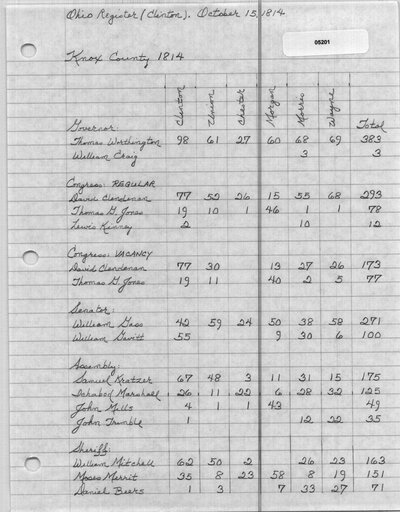 Ohio Register (Clinton). October 15, 1814
05201
Knox County 1814
Clinton Union Chester Morgan Morris Wayne Total
Governor:
Thomas Worthington 98 61 27 60 68 69 383
William Craig 3 3
Congress: REGULAR
David Clendenan 77 52 26 15 55 68 293
Thomas G. Jones 19 10 1 46 1 1 78
Lewis Kinney 2 10 12
Congress: VACANCY
David Clendenan 77 30 13 27 26 173
Thomas G. Jones 19 11 40 2 5 77
Senator:
William Gass 42 59 24 50 38 58 271
William Gavitt 55 9 30 6 100
Assembly:
Samuel Kratzer 67 48 3 11 31 15 175
Ichabod Marshael 26 11 22 6 28 32 125
John Mills 4 1 1 43 49
John Trimble 1 12 22 35
Sheriff:
William Mitchell 62 50 2 26 23 163
Moses Merrit 35 8 23 58 8 19 151
Daniel Beers 1 3 7 33 27 71